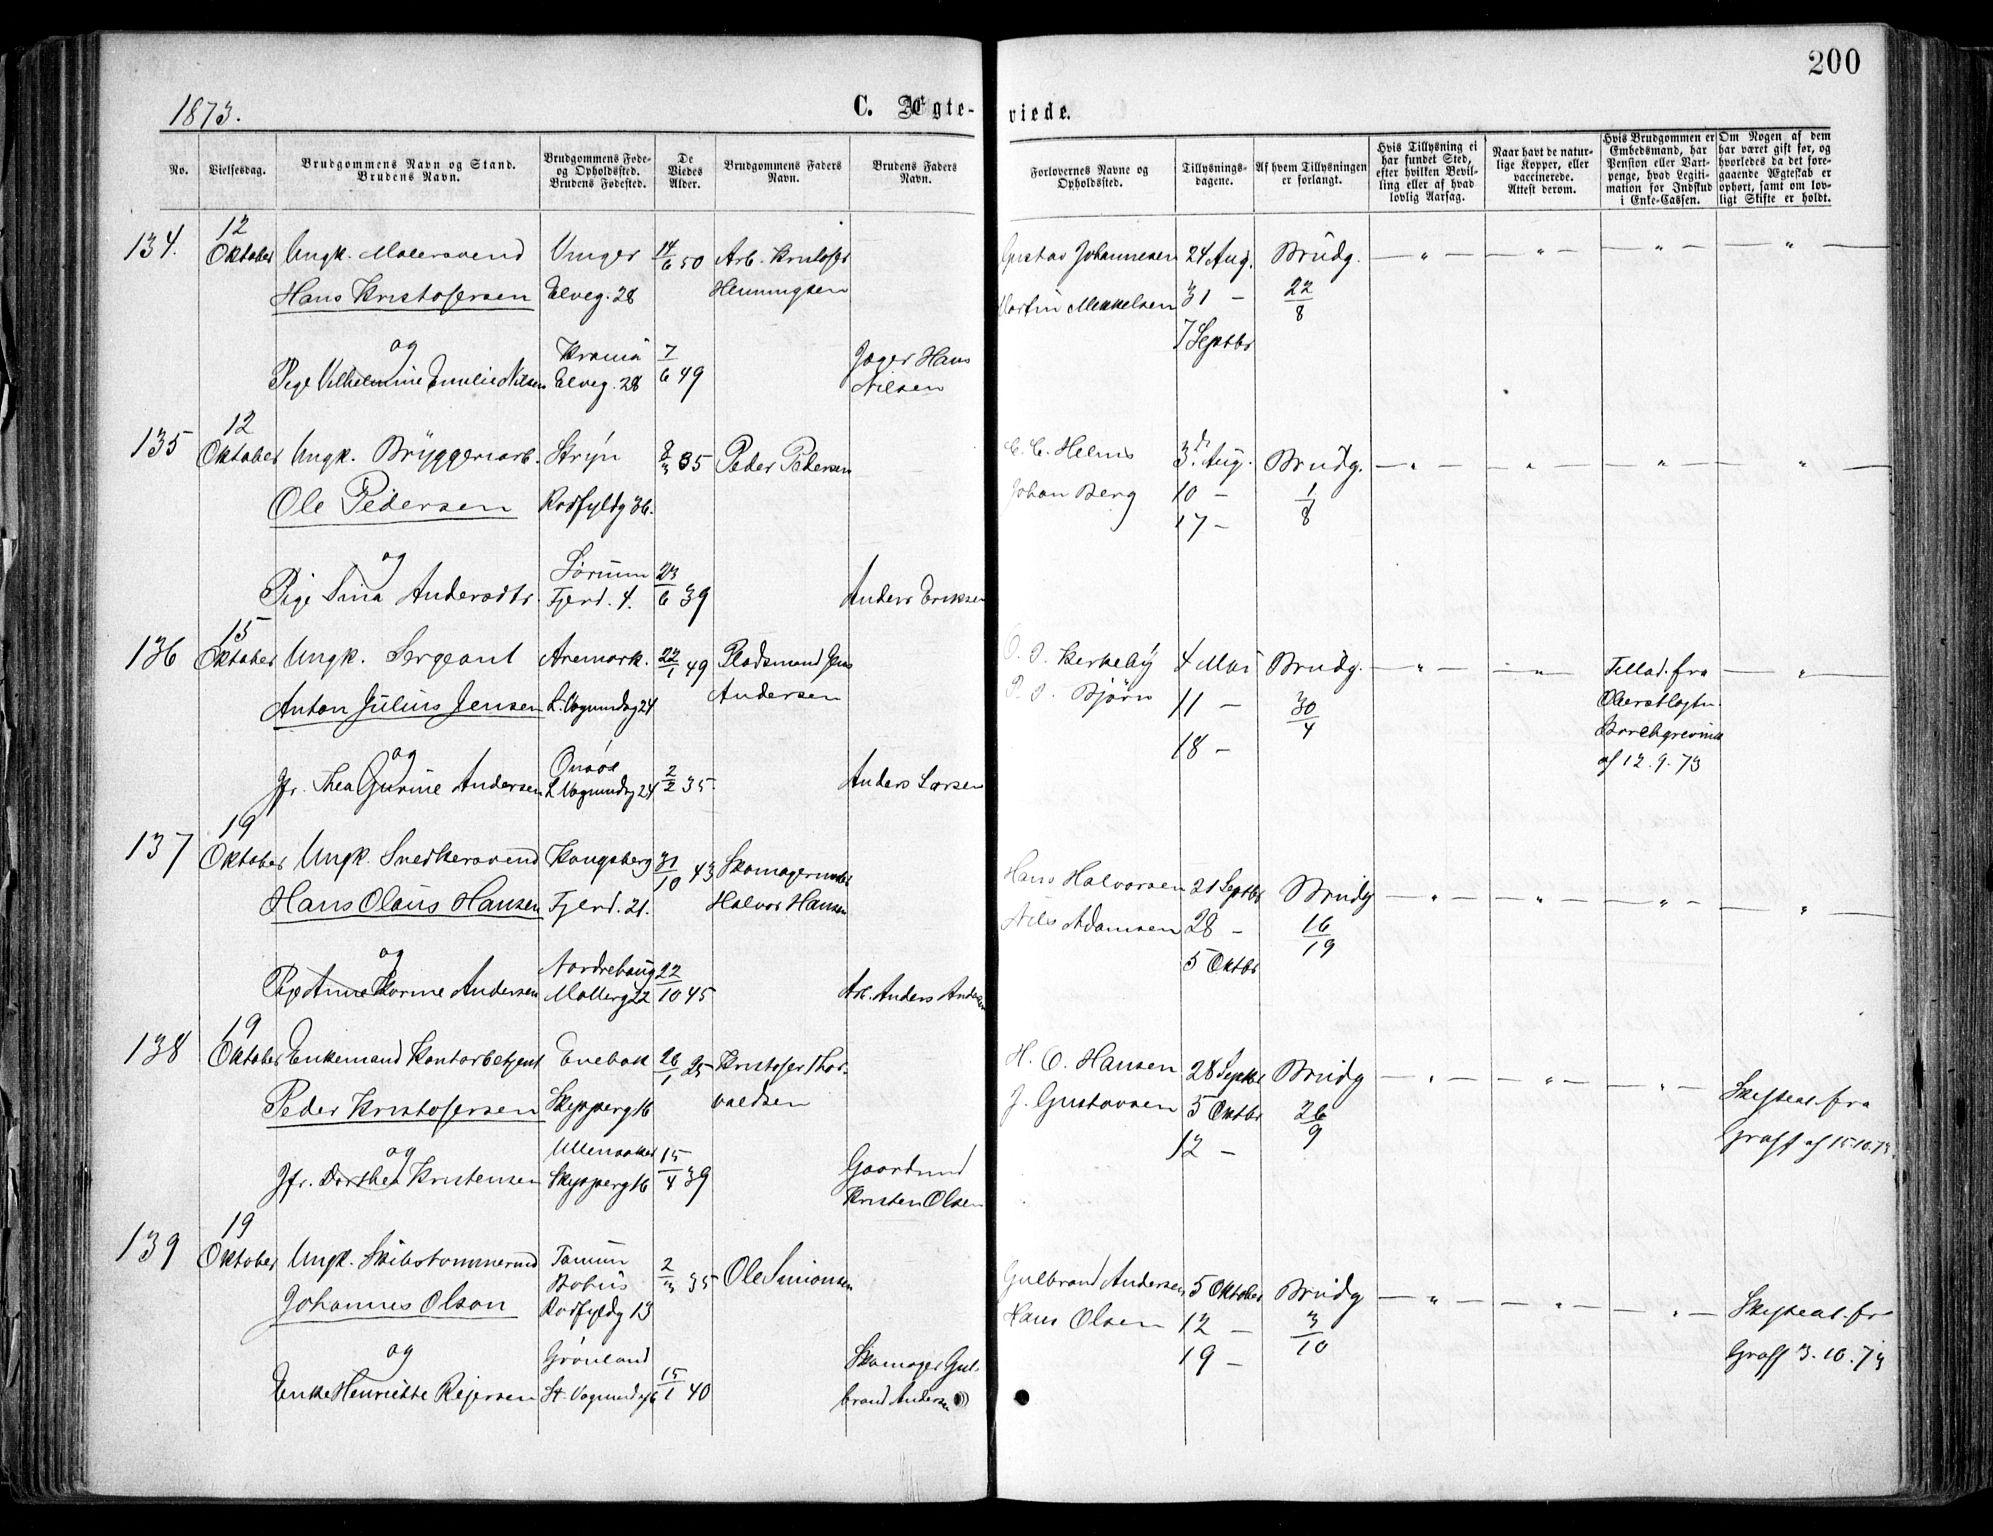 200
1873.
C. Ægte-viede.
No.
Vielsesdag.
Brudgommens Navn og Stand.
Brudens Navn.
Brudgommens Føde-
og Opholdssted.
Brudens Fødested.
De
Viedes
Alder.
Brudgommens Faders
Navn.
Brudens Faders
Navn.
Forlovernes Navne og
Opholdssted.
Tillysnings-
dagene.
Af hvem Tillysningen
er forlangt.
Hvis Tillysning ei
har fundet Sted,
efter hvilken Bevil-
ling eller af hvad
lovlig Aarsag.
Naar havt de natur-
lige Kopper, eller
vaccinerede.
Attest derom.
Hvis Brudgommen er
Embedsmand, har
Pension eller Vart-
penge, hvad Legiti-
mation for Indskud
i Enke-Cassen.
Om Nogen af dem
har været gift før, og
hvorledes da det fore-
gaaende Ægteskab er
ophørt, samt om lov-
ligt Skifte er holdt.
134.
12
Oktober
Ungk. Malersvend
Hans Kristofersen
og
Pige Vilhelmine Emelie Nilsen
Unger
Elveg. 28
Kra̅nia
Elveg. 28
14/6 50
7/6 49
Arb. Kristofer
Henningsen
Jæger Hans
Nilsen
Gustav Johannesen
Martin Mikkelsen
24 Aug.
31 —
7 Septbr
Brudg.
22/8
— " — — " — — " — — " —
135
12
Oktober
Ungk. Bryggeriarb.
Ole Pedersen
og
Pige Sina Andersdtr.
Stryn
Rodfyldg 36.
Sørum
Fjerd. 4.
35
23/6 39
Peder Pedersen
Anders Eriksen
C. C. Helms
Johan Berg
3. Aug.
10 —
17 —
Brudg.
1/8
— " — " — " — " —
136
15
Oktober
Ungk. Sergeant
Anton Julius Jensen
og
Jfr. Thea Gurine Andersen
Aremark.
L. Vognmdsg 24
Onsøe
L. Vognmdsg 24
22/1 49
2/2 35
Pladsmand Jens
Andersen
Anders Larsen
O. S. Kerkeby
P. S. Bjørn
4 Mai
11 —
18 —
Brudg.
30/4
— " — — " —
Tillad. fra
Oberstløytn.
Borchgrevink
af 12. 9. 73
— " —
137
19
Oktober
Ungk. Snedkersvend
Hans Olaus Hansen
og
Pige Anne Karine Andersen
Kongsberg
Fjerd. 21.
Norderhaug
Møllerg 22
31/10 43
22/10 45
Skomagermester
Halvor Hansen
Arb. Anders Andersen
Hans Halvorsen
Nils Adamsen
21 Septbr
28 —
5 Oktbr
Brudg
16/19
— " — — " — — " — — " —
138
19
Oktober
Enkemand Kontorbetjent
Peder Kristofersen
og
Jfr. Dorthea Kristensen
Enebak
Skipperg 16
Ullensaker
Skipperg 16
26/1 25
15/4 39
Kristofer Thor-
valdsen
Gaardmd
Kristen Olsen
H. O. Hansen
J. Gustavsen
28 Septbr
5 Oktbr
12 —
Brudg
26/9
— " — — " — — " —
Skifteat. fra
Graff af 15.10.73
139
19
Oktober
Ungk. Skibstømmermd
Johannes Olson
og
Enke Henriette Rejersen
Tanum
Bohus
Rodfyldg 13
Grønland
St. Vognmdsg 6
2/3 35
15/1 40
Ole Simonsen
Skomager Gul-
brand Andersen
Gulbrand Andersen
Hans Olsen
5 Oktober
12 —
19 —
Brudg
3/10
— " — — " — — " —
Skifteat. fra
Graff 3. 10. 73